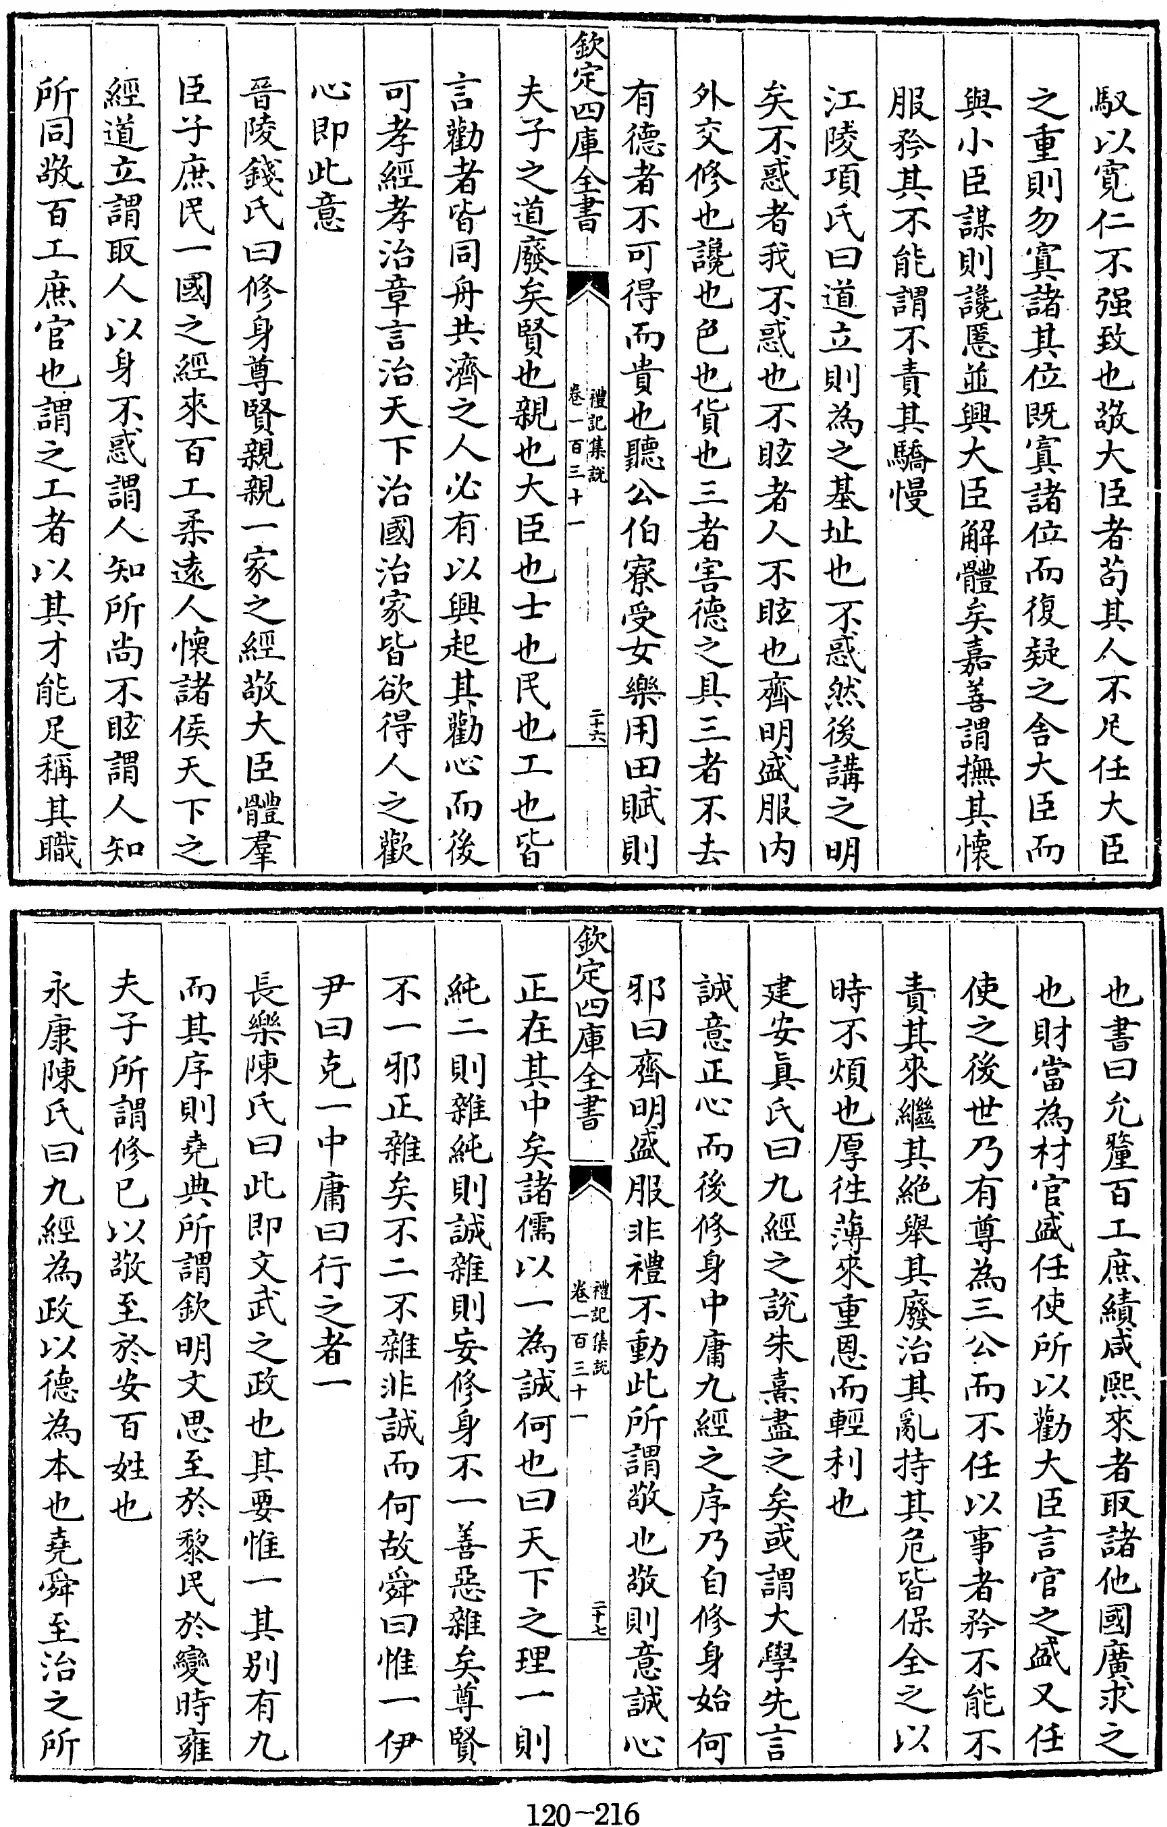 馭以寛仁不强致也敬大臣者茍其人不足任大臣
之重則勿寘諸其位既寘諸位而復疑之舎大臣而
與小臣謀則讒慝並興大臣解體矣嘉善謂撫其懷
服矜其不能謂不責其驕慢
江陵項氏曰道立則為之基址也不惑然後講之明
矣不惑者我不惑也不眩者人不眩也齊明盛服内
外交修也讒也色也貨也三者害德之具三者不去
有德者不可得而貴也聽公伯寮受女樂用田賦則
欽定四庫全書
禮記集說
卷一百三十一
二十六
夫子之道廢矣賢也親也大臣也士也民也工也皆
言勸者皆同舟共濟之人必有以興起其勸心而後
可孝經孝治章言治天下治國治家皆欲得人之歡
心即此意
晉陵錢氏曰修身尊賢親親一家之經敬大臣體羣
臣子庶民一國之經來百工柔逺人懷諸侯天下之
經道立謂取人以身不惑謂人知所尚不眩謂人知
所同敬百工庶官也謂之工者以其才能足稱其職
也書曰允釐百工庶績咸熙來者取諸他國廣求之
也財當為材官盛任使所以勸大臣言官之盛又任
使之後世乃有尊為三公而不任以事者矜不能不
責其來繼其絶舉其廢治其亂持其危皆保全之以
時不煩也厚徃薄來重恩而輕利也
建安真氏曰九經之說朱熹盡之矣或謂大學先言
誠意正心而後修身中庸九經之序乃自修身始何
邪曰齊明盛服非禮不動此所謂敬也敬則意誠心
欽定四庫全書
禮記集說
卷一百三十一
二十七
正在其中矣諸儒以一為誠何也曰天下之理一則
純二則雜純則誠雜則妄修身不一善惡雜矣尊賢
不一邪正雜矣不二不雜非誠而何故舜曰惟一伊
尹曰克一中庸曰行之者一
長樂陳氏曰此即文武之政也其要惟一其别有九
而其序則堯典所謂欽明文思至於黎民於變時雍
夫子所謂修已以敬至於安百姓也
永康陳氏曰九經為政以德為本也堯舜至治之所
120-216